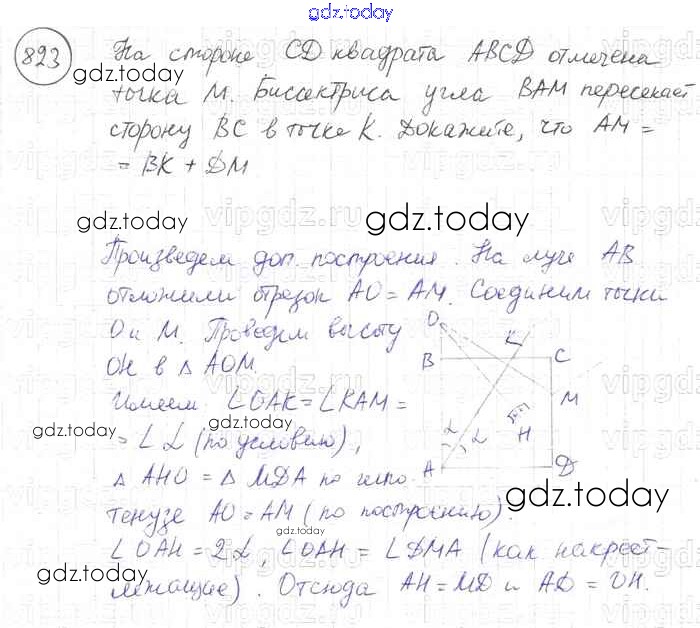 gdz.today
893 На стороне CD квадрата ABCD отмечена
gdz.today
точка M. Биссектриса угла BAM пересекает
сторону BC в точке K. Докажите, что AM =
= BK + DM
gdz.today
gdz.today
Произведем доп. построения. На луче AB
отложили отрезок AO = AM. Соединим точки
O и M. Проведем высоту
OH в △ AOM.
Имеем ∠OAK = ∠KAM =
gdz.today
= ∠α (по условию),
△ AHO = △ MDA по гипо-
тенузе AO = AM (по построению).
gdz.today
∠OAH = 2α, ∠OAH = ∠DMA (как накрест-
gdz.today
gdz.today
лежащие). Отсюда AH = MD и AD = OH.
O
K
B
C
M
H
α
α
A
D
vipgdz.ru